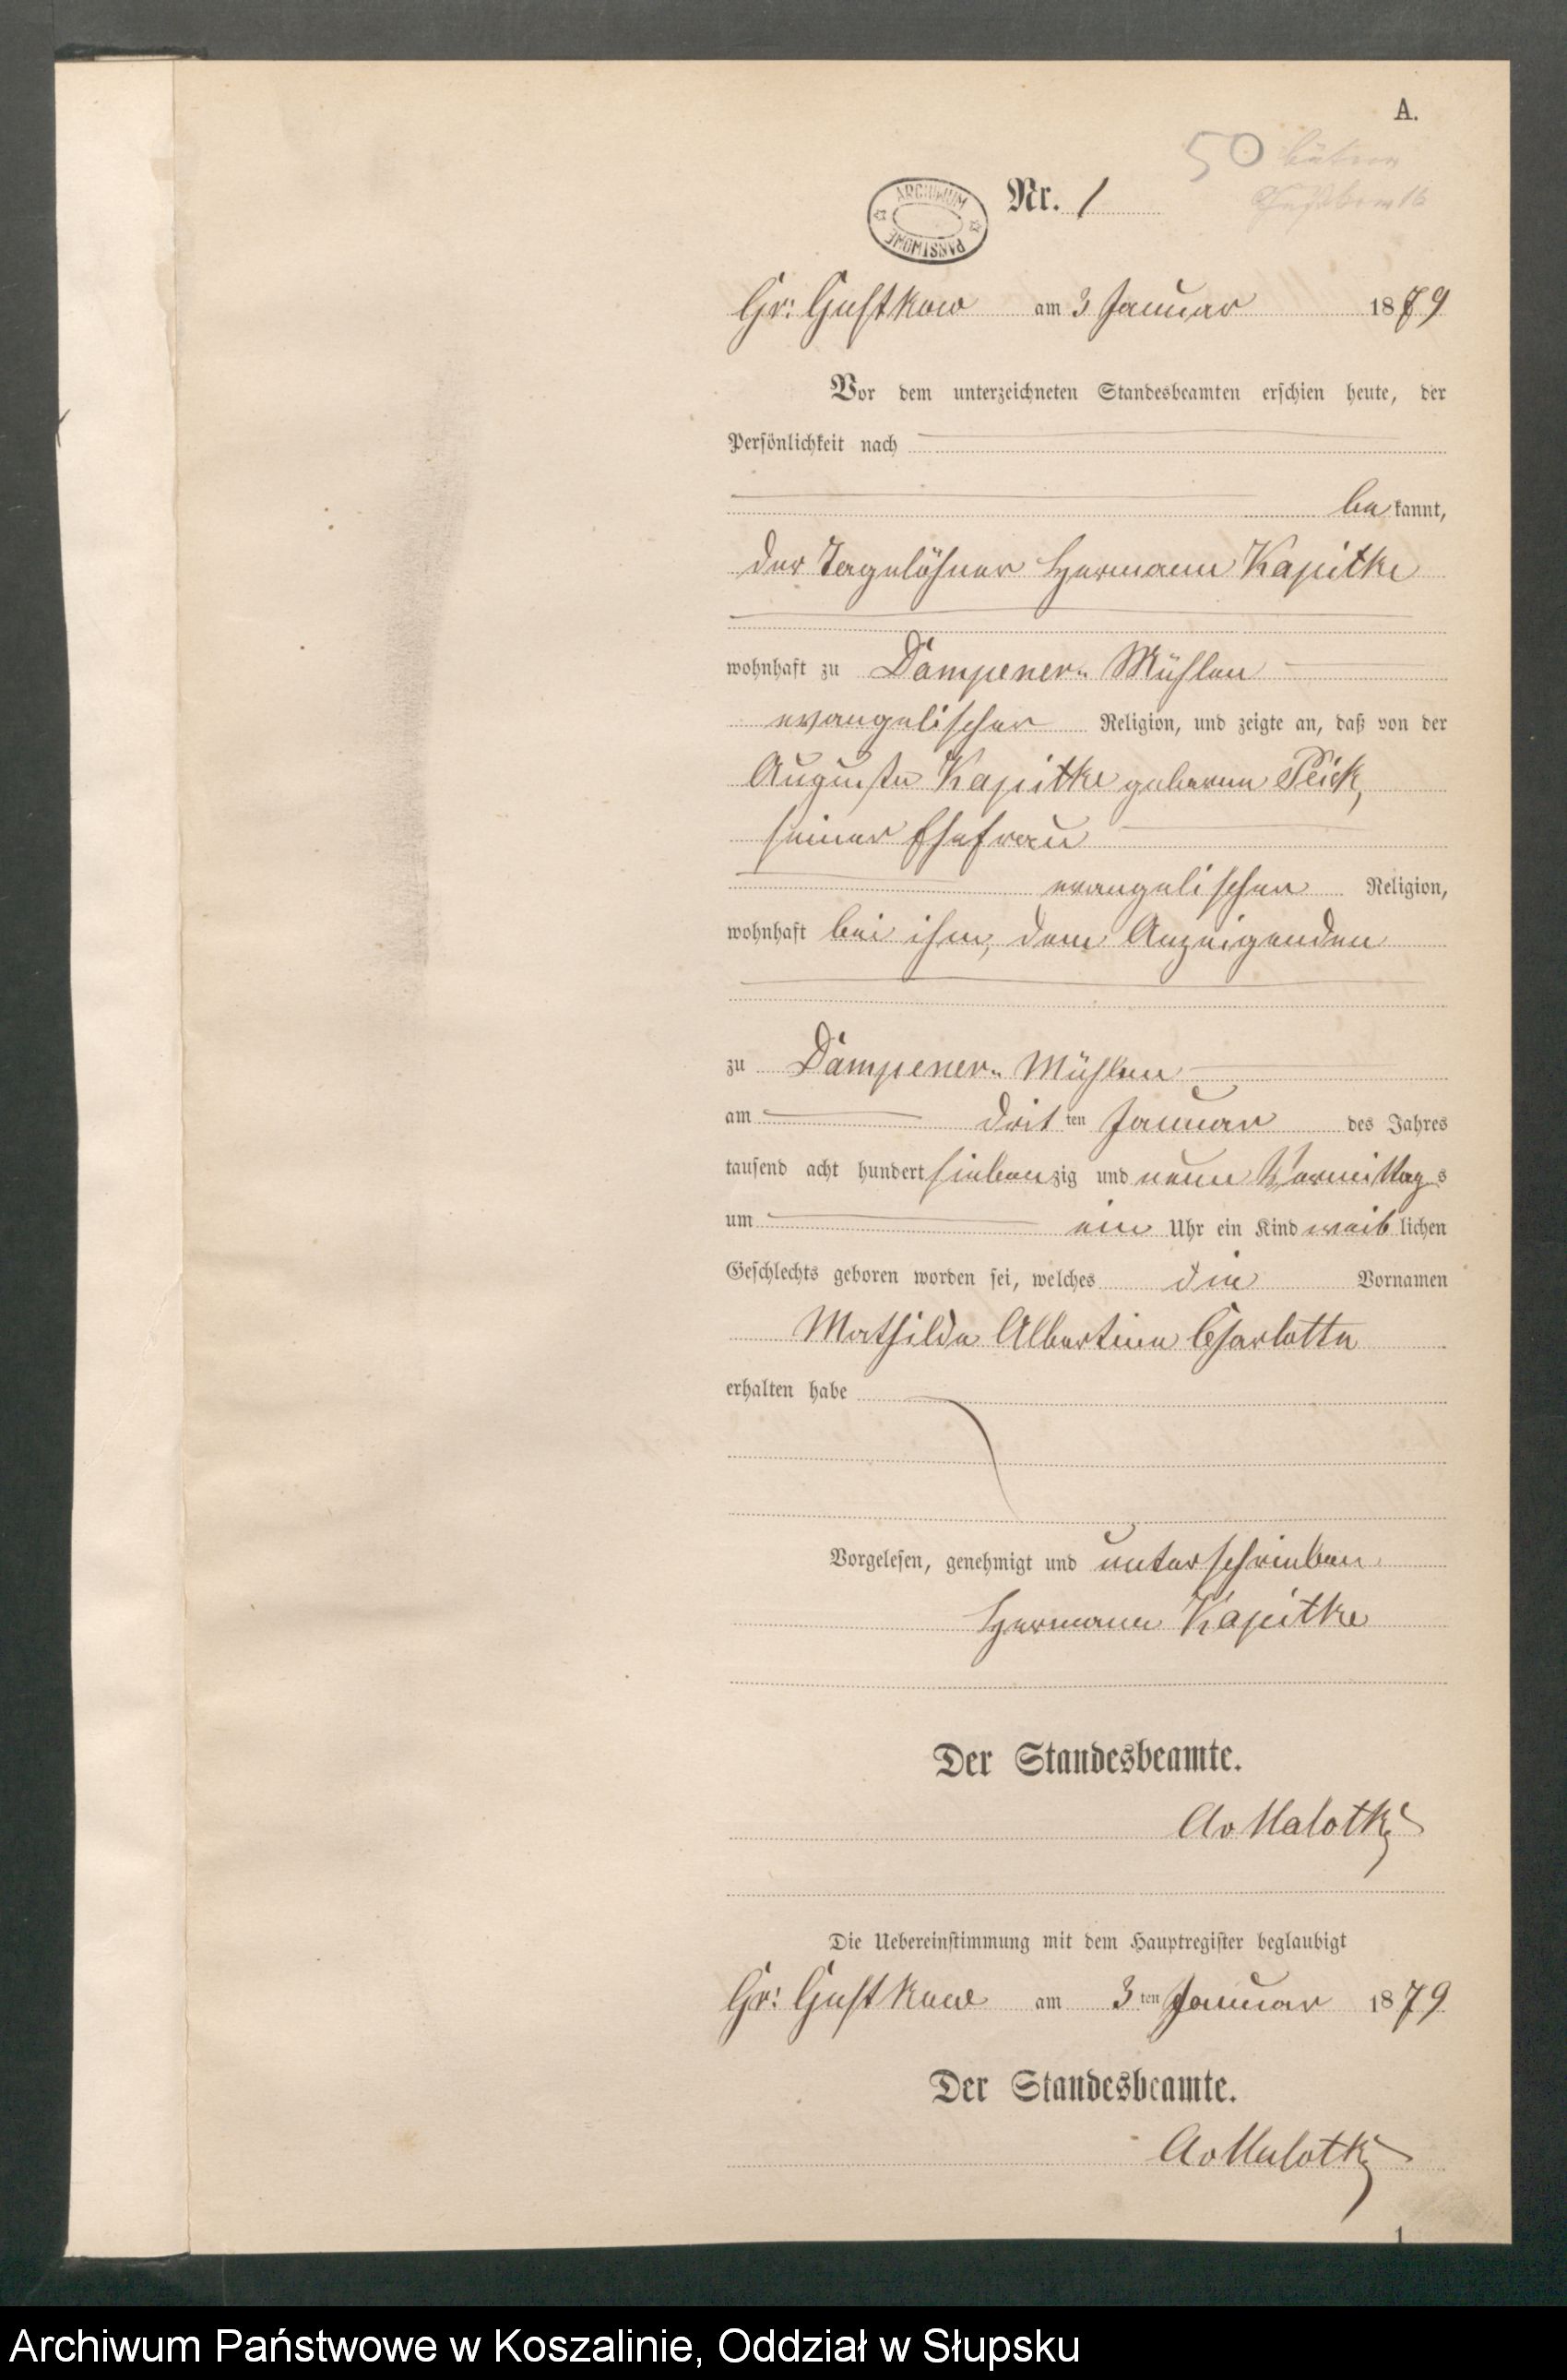 A.
50
ARCHIWUM
PAŃSTWOWE
Nr. 1
Gr: Gustkow am 3 Januar 1879
Vor dem unterzeichneten Standesbeamten erschien heute, der
Persönlichkeit nach
be kannt,
der Tagelöhner Hermann Kapitke
wohnhaft zu Dampener- Mühlen
evangelischer Religion, und zeigte an, daß von der
Auguste Kapitke geborene Peick,
seiner Ehefrau
evangelischer Religion,
wohnhaft bei ihm, dem Anzeigenden
zu Dampener- Mühlen
am drit ten Januar des Jahres
tausend acht hundert sieben zig und neun Vormittag s
um ein Uhr ein Kind weib lichen
Geschlechts geboren worden sei, welches die Vornamen
Mathilde Albertine Charlotte
erhalten habe
Vorgelesen, genehmigt und unterschrieben
Hermann Kapitke
Der Standesbeamte.
Av Malotki
Die Uebereinstimmung mit dem Hauptregister beglaubigt
Gr: Gustkow am 3 ten Januar 1879
Der Standesbeamte.
Av Malotki
1
Archiwum Państwowe w Koszalinie, Oddział w Słupsku